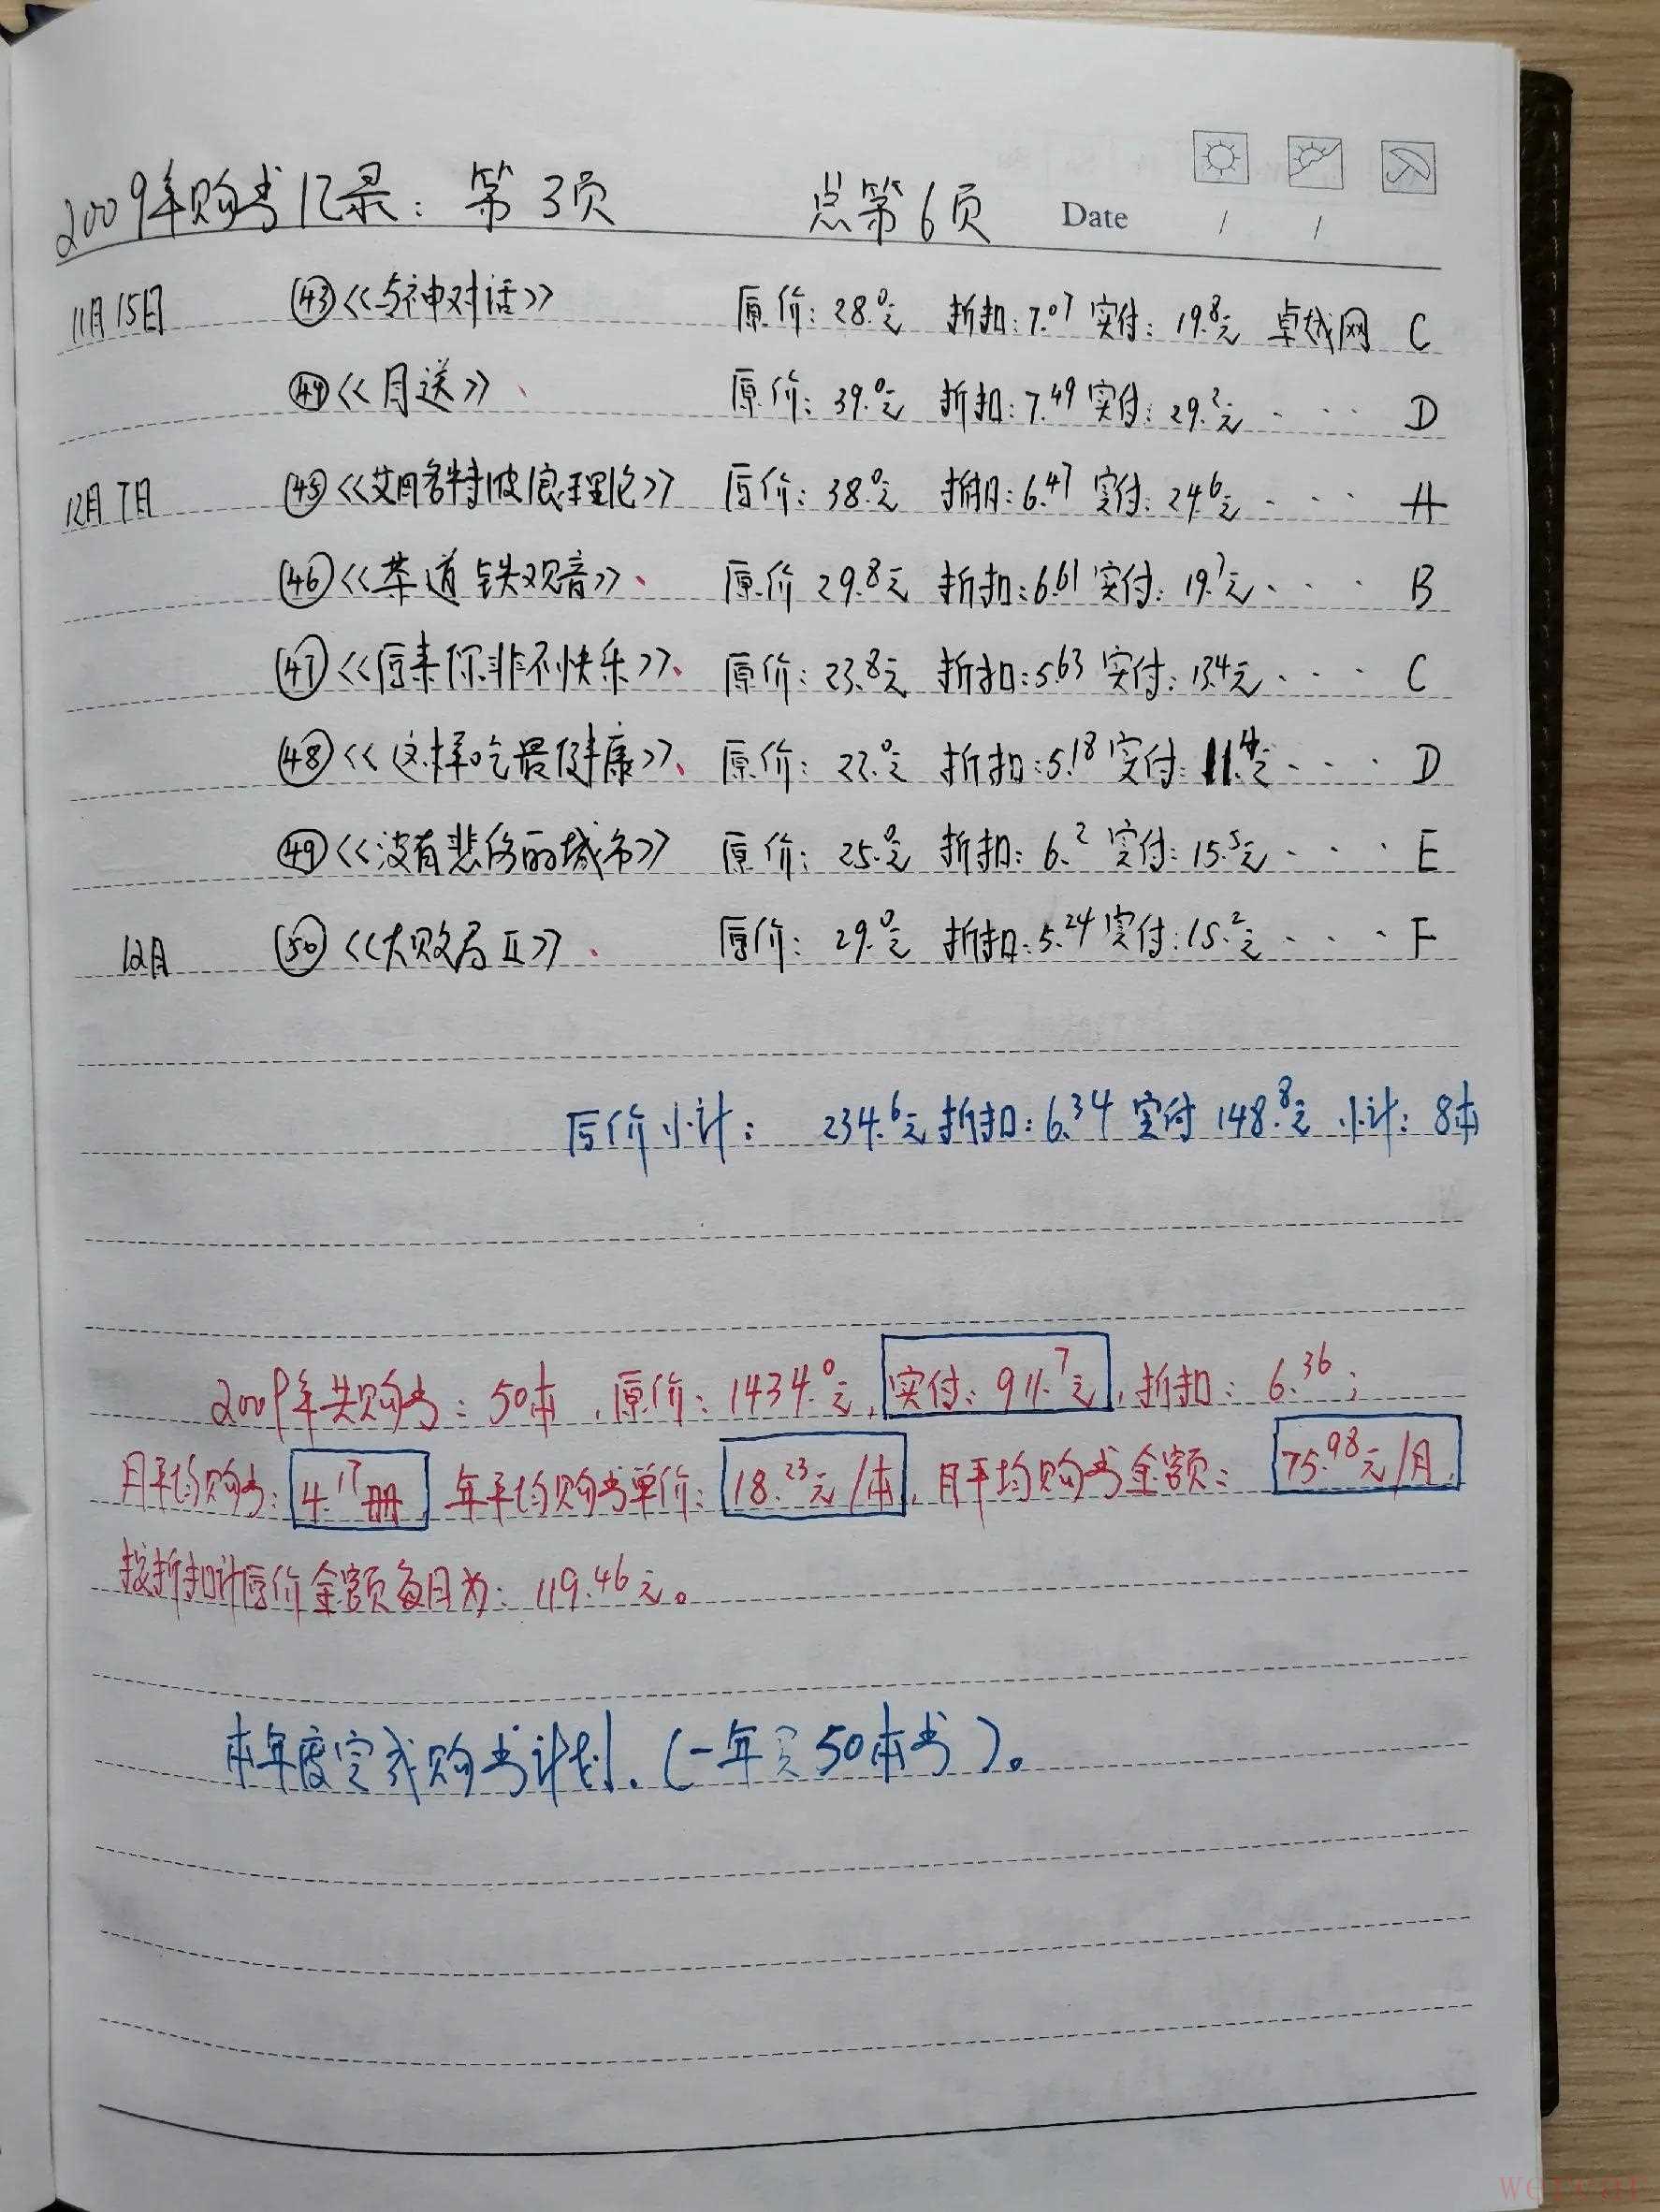 2009年购书记录：第3页 总第6页 Date / /
11月15日 ㊸《与神对话》 原价：28.0元 折扣：7.07 实付：19.8元 卓越网 C
㊹《目送》、 原价：39.0元 折扣：7.49 实付：29.2元 ···· D
12月7日 ㊺《艾略特波浪理论》 原价：38.0元 折扣：6.47 实付：24.6元 ···· A
㊻《茶道 铁观音》、 原价 29.8元 折扣：6.61 实付：19.7元 ···· B
㊼《原来你非不快乐》、 原价：23.8元 折扣：5.63 实付：13.4元 ···· C
㊽《这样吃最健康》、 原价：22.0元 折扣：5.18 实付：11.4元 ···· D
㊾《没有悲伤的城市》 原价：25.0元 折扣：6.2 实付：15.5元 ···· E
12月 ㊿《大败局Ⅱ》、 原价：29.0元 折扣：5.24 实付：15.2元 ···· F
原价小计： 234.6元 折扣：6.34 实付 148.8元 小计：8本
2009年共购书：50本，原价：1434.0元，实付：911.7元，折扣：6.36；
月平均购书：4.17册 年平均购书单价：18.23元/本，月平均购书金额：75.98元/月，
按折扣计原价金额每月为：119.46元。
本年度完成购书计划.（一年买50本书）。